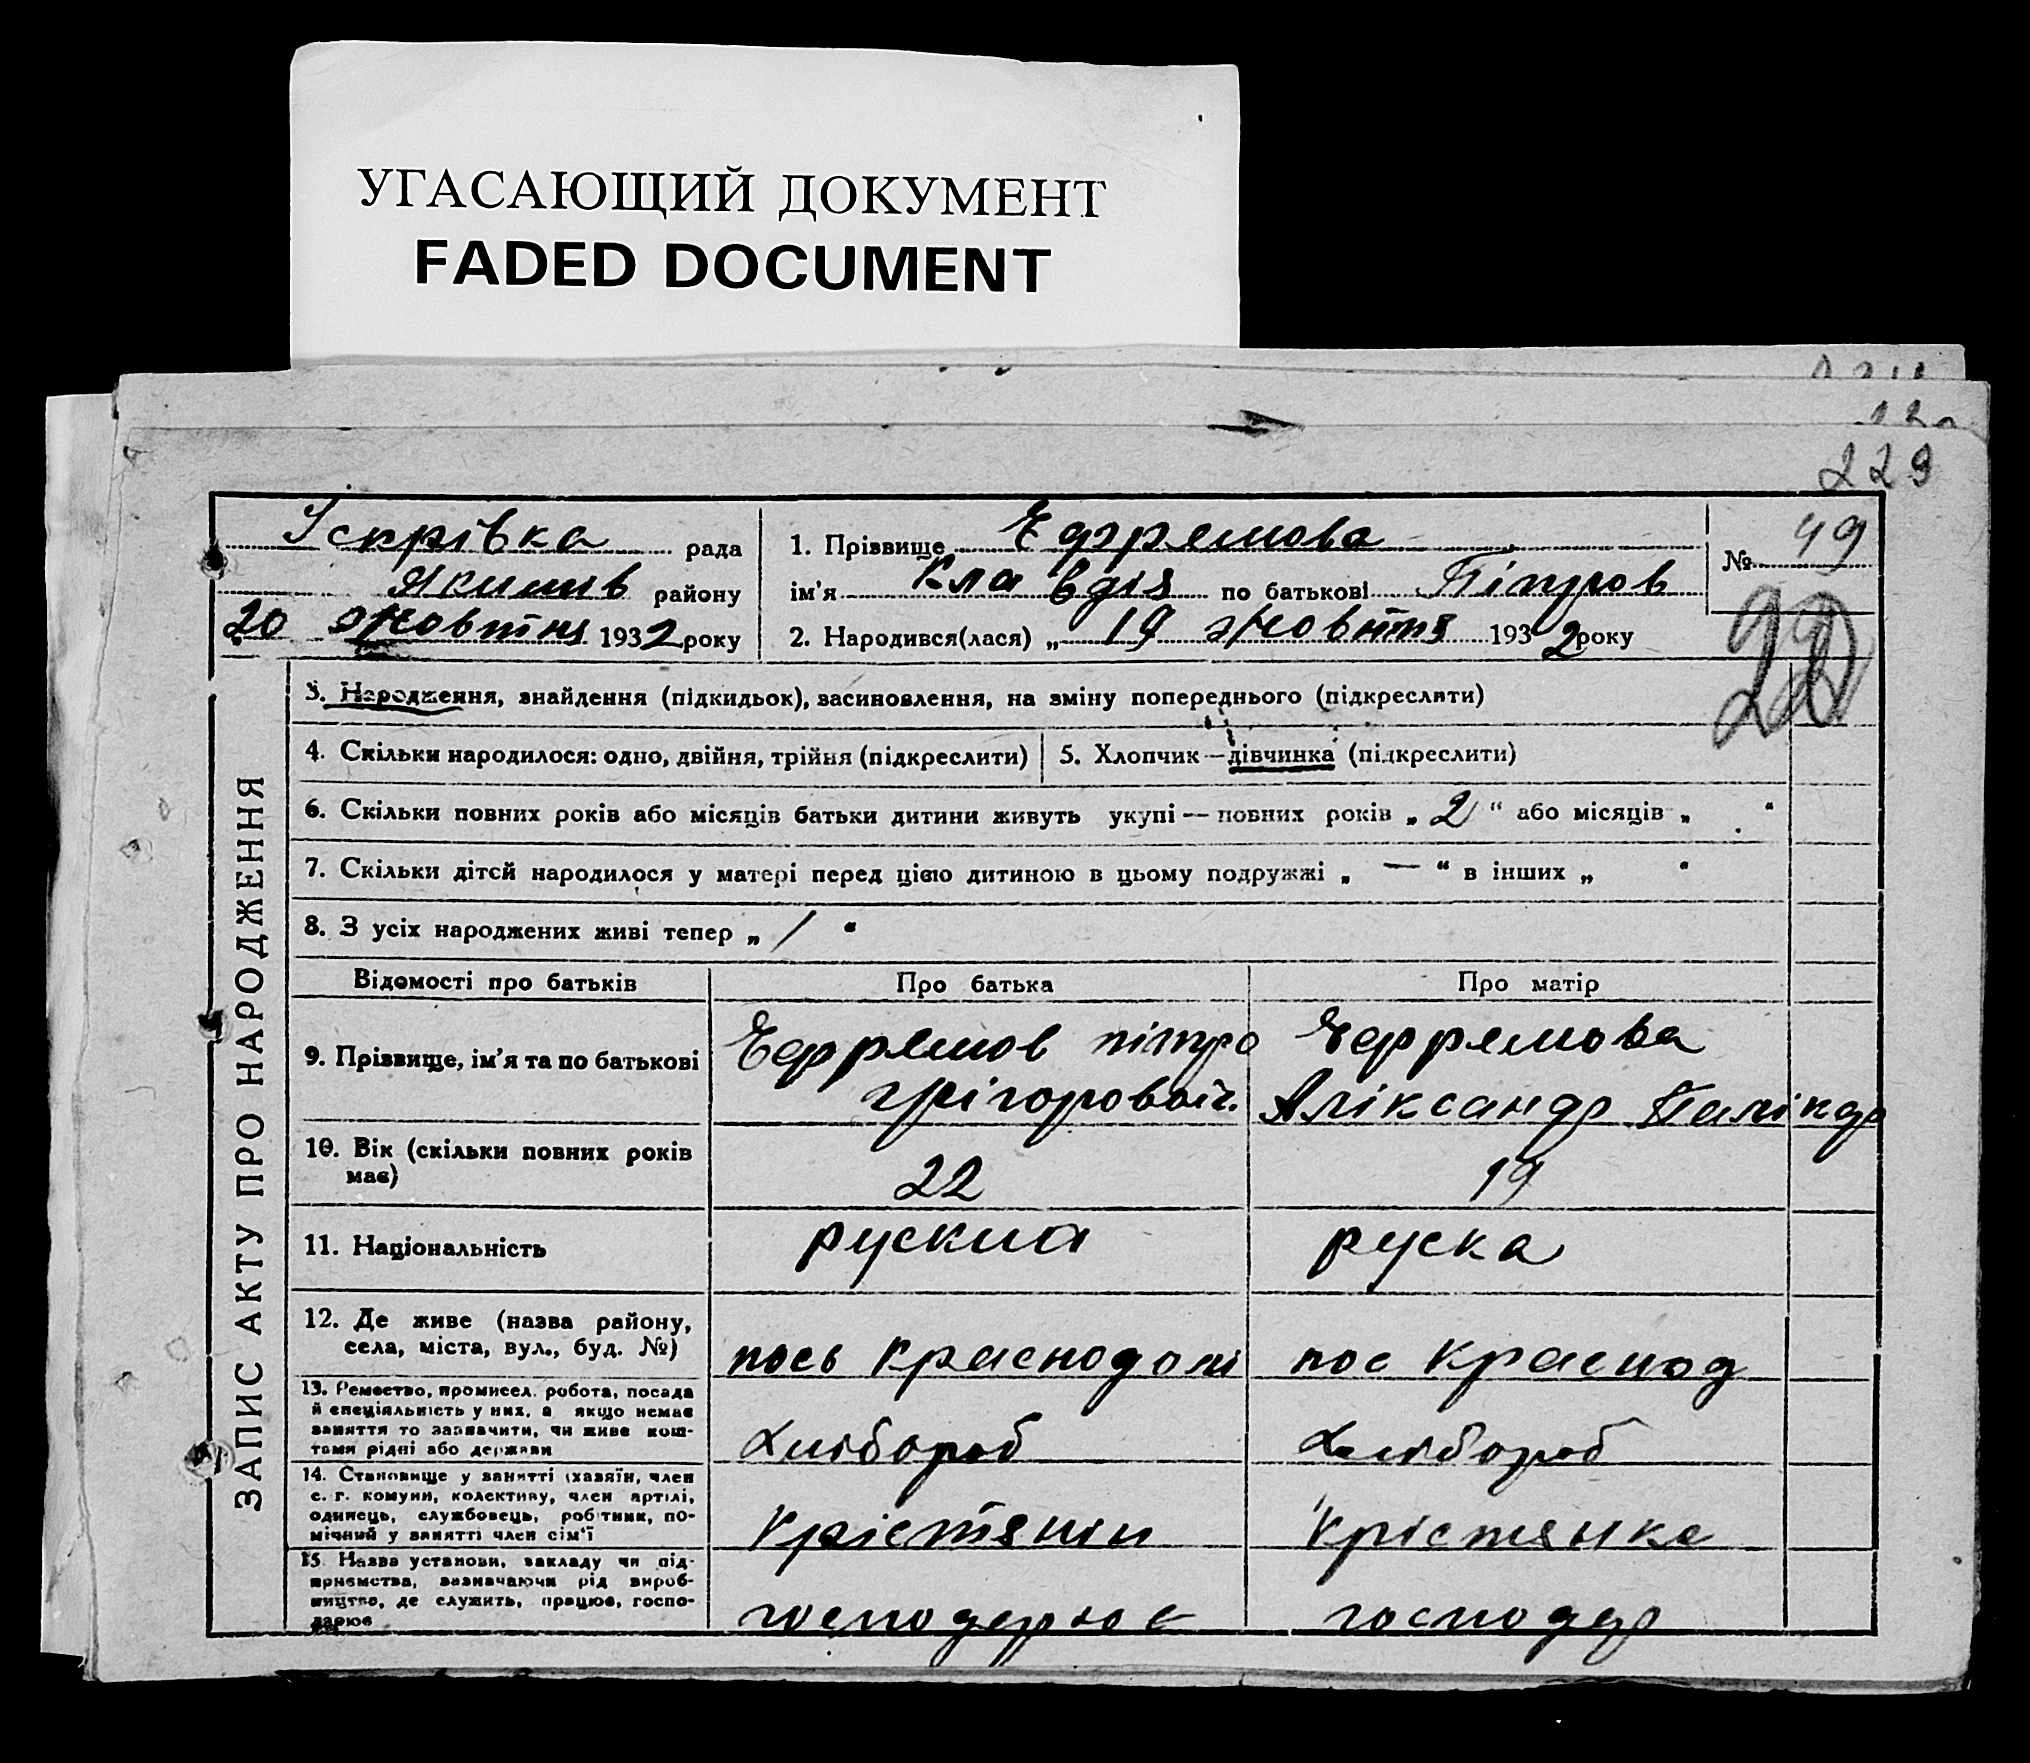 УГАСАЮЩИЙ ДОКУМЕНТ
FADED DOCUMENT
229
Іскрівка рада
Якимів району
20 жовтня 1932 року
1. Прізвище Ефремова
ім'я Клавдія по батькові Пітров
2. Народився(лася) „ 19 жовтня 1932 року
№ 49
22
ЗАПИС АКТУ ПРО НАРОДЖЕННЯ
3. Народження, знайдення (підкидьок), засиновлення, на зміну попереднього (підкреслити)
4. Скільки народилося: одно, двійня, трійня (підкреслити)
5. Хлопчик — дівчинка (підкреслити)
6. Скільки повних років або місяців батьки дитини живуть укупі — повних років „ 2 “ або місяців „ “
7. Скільки дітей народилося у матері перед цією дитиною в цьому подружжі „ — “ в інших „ “
8. З усіх народжених живі тепер „ 1 “
Відомості про батьків Про батька Про матір
9. Прізвище, ім'я та по батькові
Ефремов пітро
грігоровоіч.
Ефремова
Аліксандр
10. Вік (скільки повних років
має)
22
19
11. Національність
рускиа
руска
12. Де живе (назва району,
села, міста, вул., буд. №)
пось Краснодолі
пос Краснод
13. Ремество, промисел, робота, посада
й спеціяльність у них, а якщо немає
заняття то зазначити, чи живе кош-
тами рідні або держави
Хлібороб
Хлібороб
14. Становище у занятті (хазяїн, член
с. г. комуни, колективу, член артілі,
одинець, службовець, робітник, по-
мічний у занятті член сім'ї
Крістянін
Крістянка
15. Назва установи, закладу чи під-
приємства, зазначаючи рід вироб-
ництва, де служить, працює, госпо-
дарює
господерює
господер